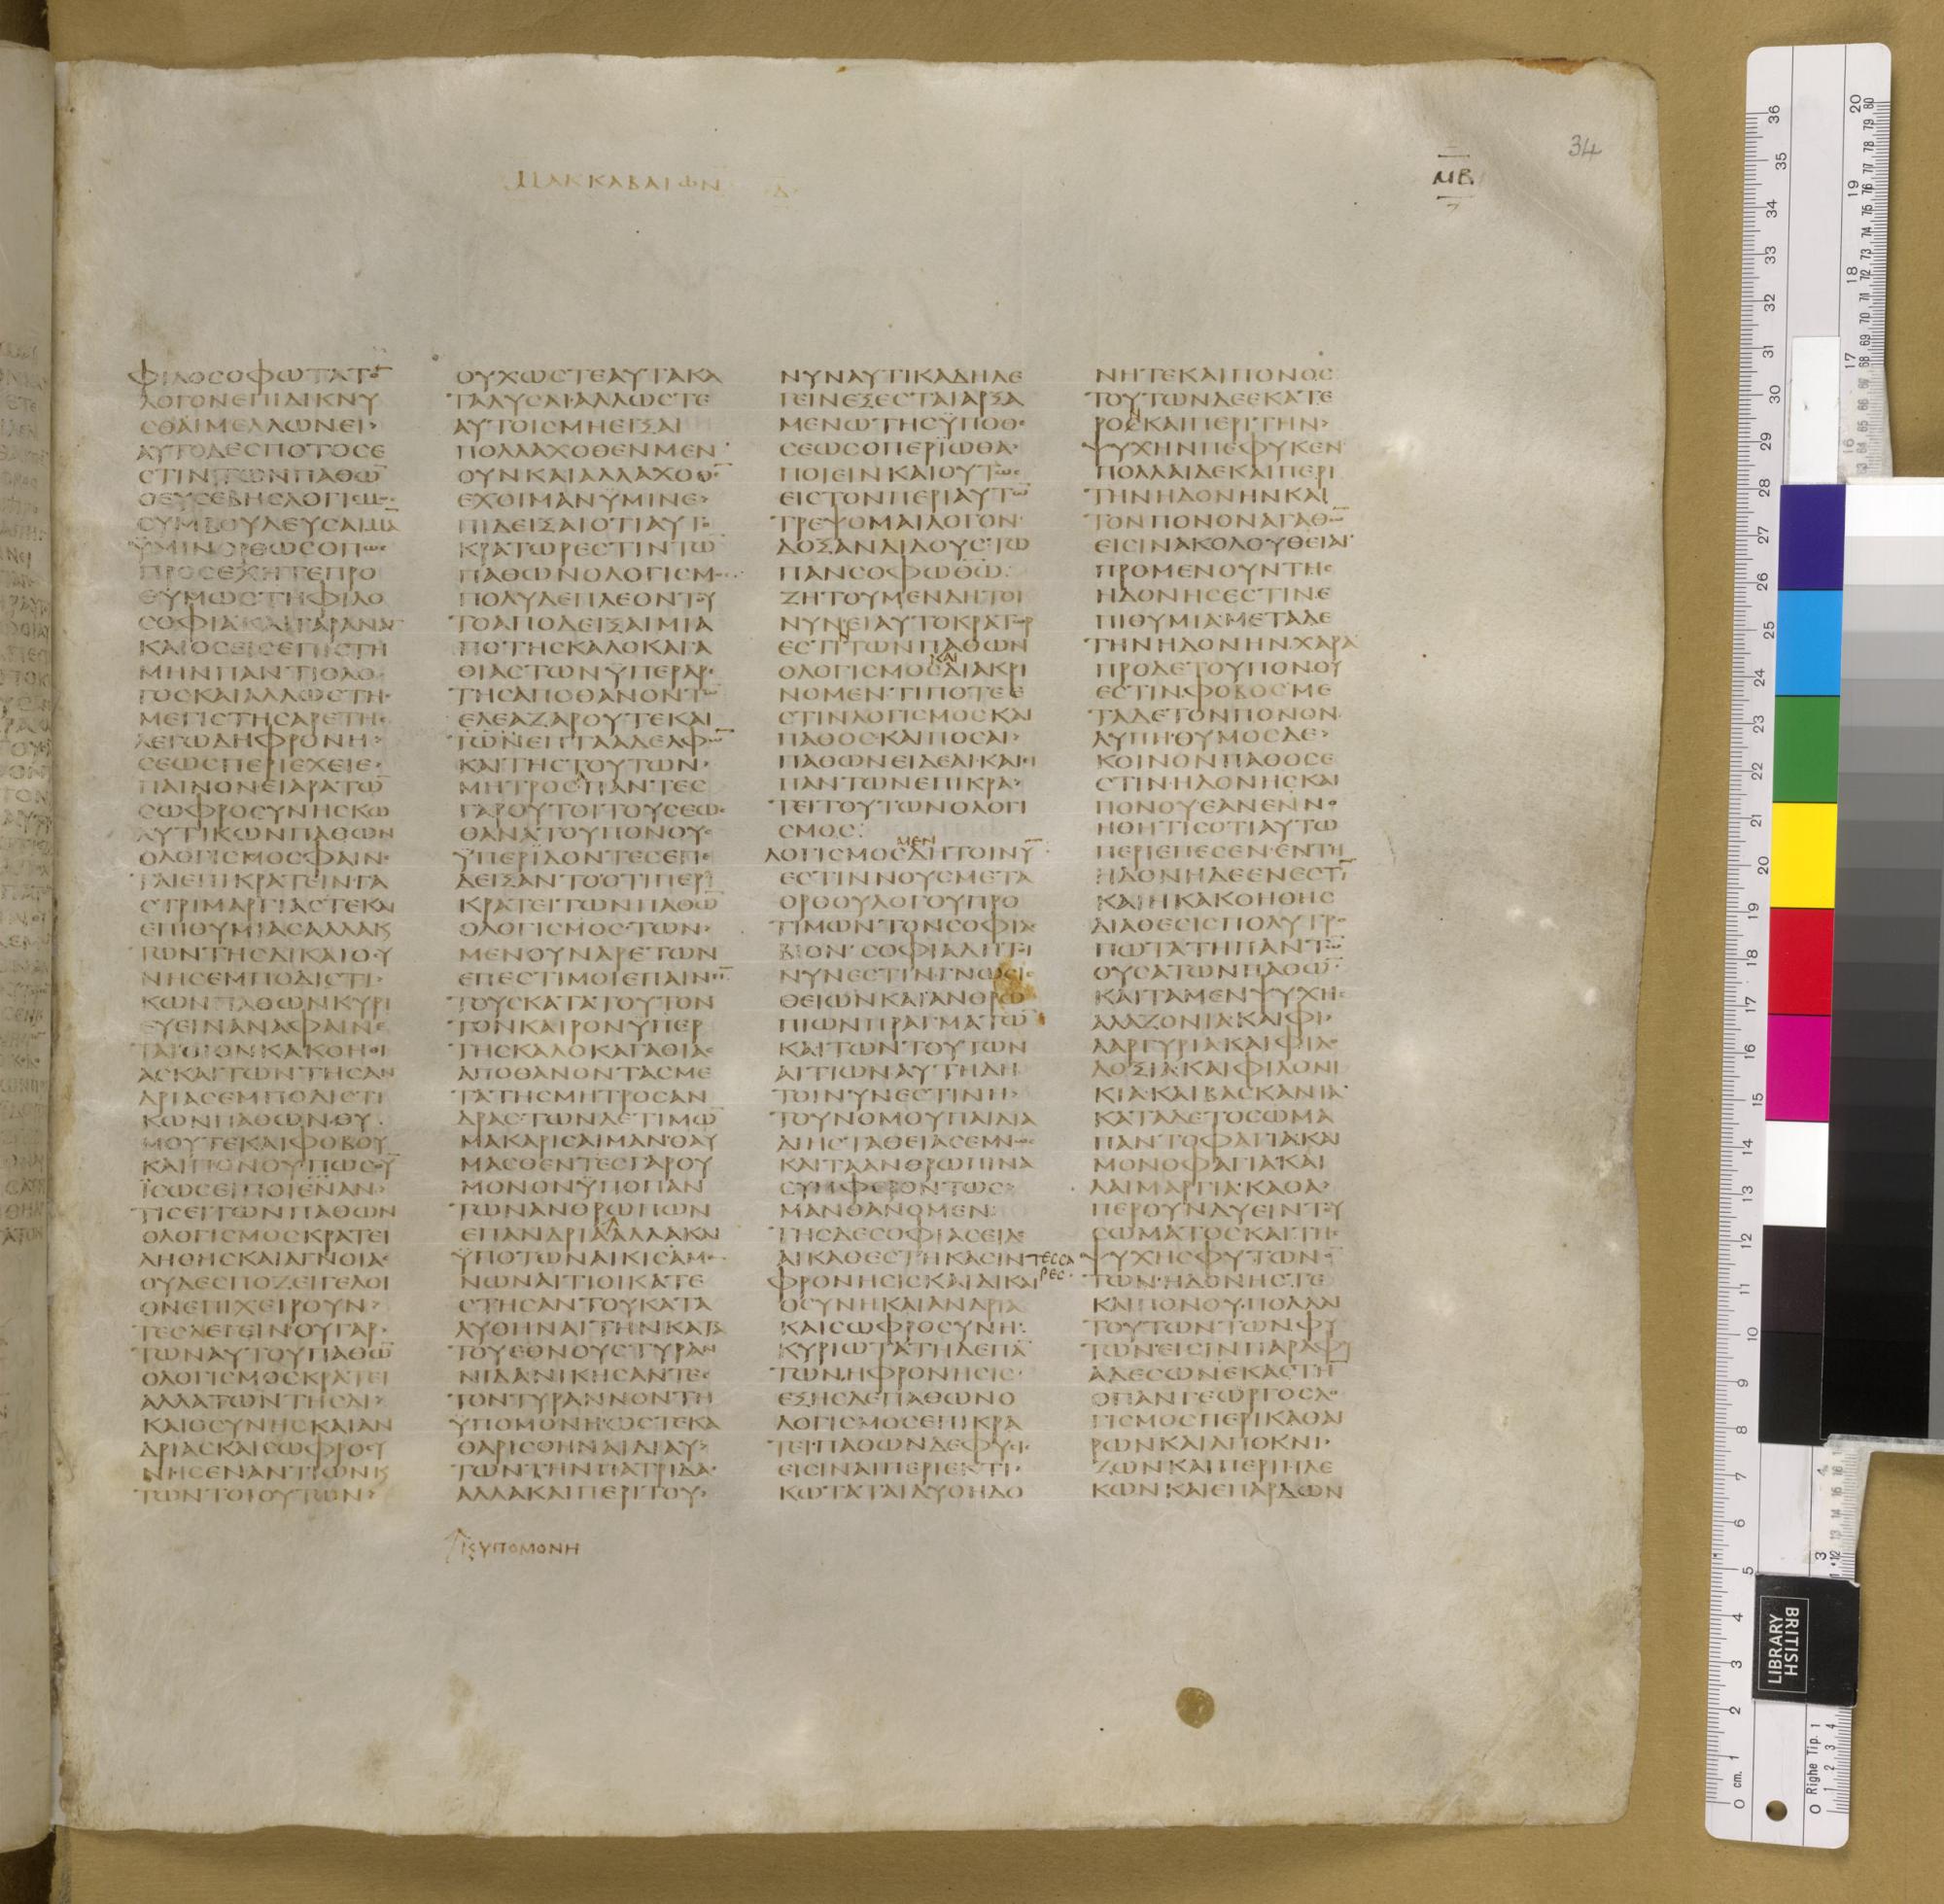 ΜΑΚΚΑΒΑΙΩΝ Δ
ΜΒ
34
ΦΙΛΟϹΟΦΩΤΑΤΟ̅
ΛΟΓΟΝΕΠΙΔΙΚΝΥ
ϹΘΑΙΜΕΛΛΩΝΕΙ>
ΑΥΤΟΔΕϹΠΟΤΟϹΕ
ϹΤΙΝΤΩΝΠΑΘΩ̅
ΟΕΥϹΕΒΗϹΛΟΓΙϹΜΟϹ
ϹΥΜΒΟΥΛΕΥϹΑΙΜΑ̅
ΫΜΙΝΟΡΘΩϹΟΠΩϹ
ΠΡΟϹΕΧΗΤΕΠΡΟ
ΘΥΜΩϹΤΗΦΙΛΟ
ϹΟΦΙΑΚΑΙΓΑΡΑΝΑΓ
ΚΑΙΟϹΕΙϹΕΠΙϹΤΗ
ΜΗΝΠΑΝΤΙΟΛΟ
ΓΟϹΚΑΙΑΛΛΩϹΤΗϹ
ΜΕΓΙϹΤΗϹΑΡΕΤΗϹ
ΛΕΓΩΔΗΦΡΟΝΗ>
ϹΕΩϹΠΕΡΙΕΧΕΙΕ>
ΠΑΙΝΟΝΕΙΑΡΑΤΩ̅
ϹΩΦΡΟϹΥΝΗϹΚΩ
ΛΥΤΙΚΩΝΠΑΘΩΝ
ΟΛΟΓΙϹΜΟϹΦΑΙΝΕ
ΤΑΙΕΠΙΚΡΑΤΕΙΝΓΑ
ϹΤΡΙΜΑΡΓΙΑϹΤΕΚΑΙ
ΕΠΙΘΥΜΙΑϹΑΛΛΑΚΑΙ
ΤΩΝΤΗϹΔΙΚΑΙΟϹΥ
ΝΗϹΕΜΠΟΔΙϹΤΙ>
ΚΩΝΠΑΘΩΝΚΥΡΙ
ΕΥΕΙΝΑΝΑΦΑΙΝΕ
ΤΑΙΟΙΟΝΚΑΚΟΗΘΙ
ΑϹΚΑΙΤΩΝΤΗϹΑΝ
ΔΡΙΑϹΕΜΠΟΔΙϹΤΙ
ΚΩΝΠΑΘΩΝΘΥ
ΜΟΥΤΕΚΑΙΦΟΒΟΥ
ΚΑΙΠΟΝΟΥΠΩϹΟΥ̅
ΪϹΩϹΕΙΠΟΙΕΝΑΝ>
ΤΙϹΕΙΤΩΝΠΑΘΩΝ
ΟΛΟΓΙϹΜΟϹΚΡΑΤΕΙ
ΛΗΘΗϹΚΑΙΑΓΝΟΙΑϹ
ΟΥΔΕϹΠΟΖΕΙΓΕΛΟΙ
ΟΝΕΠΙΧΕΙΡΟΥΝ>
ΤΕϹΛΕΓΕΙΝΟΥΓΑΡ
ΤΩΝΑΥΤΟΥΠΑΘΩ̅
ΟΛΟΓΙϹΜΟϹΚΡΑΤΕΙ
ΑΛΛΑΤΩΝΤΗϹΔΙ>
ΚΑΙΟϹΥΝΗϹΚΑΙΑΝ
ΔΡΙΑϹΚΑΙϹΩΦΡΟϹΥ
ΝΗϹΕΝΑΝΤΙΩΝΚΑΙ
ΤΩΝΤΟΙΟΥΤΩΝ>
ΟΥΧΩϹΤΕΑΥΤΑΚΑ
ΤΑΛΥϹΑΙΑΛΛΩϹΤΕ
ΑΥΤΟΙϹΜΗΕΙΞΑΙ
ΠΟΛΛΑΧΟΘΕΝΜΕΝ
ΟΥΝΚΑΙΑΛΛΑΧΟΘΕ̅
ΕΧΟΙΜΑΝΫΜΙΝΕ>
ΠΙΔΕΙΞΑΙΟΤΙΑΥΤΟ
ΚΡΑΤΩΡΕϹΤΙΝΤΩ̅
ΠΑΘΩΝΟΛΟΓΙϹΜΟϹ
ΠΟΛΥΔΕΠΛΕΟΝΤΟΥ
ΤΟΑΠΟΔΕΙΞΑΙΜΙΑ
ΠΟΤΗϹΚΑΛΟΚΑΓΑ
ΘΙΑϹΤΩΝΫΠΕΡΑΡΕ
ΤΗϹΑΠΟΘΑΝΟΝΤΩ̅
ΕΛΕΑΖΑΡΟΥΤΕΚΑΙ
ΤΩΝΕΠΤΑΑΔΕΛΦΩ̅
ΚΑΙΤΗϹΤΟΥΤΩΝ
ΜΗΤΡΟϹΠΑΝΤΕϹ
ΓΑΡΟΥΤΟΙΤΟΥϹΕΩϹ
ΘΑΝΑΤΟΥΠΟΝΟΥϹ
ΫΠΕΡΪΔΟΝΤΕϹΕΠΕ
ΔΕΙΞΑΝΤΟΟΤΙΠΕΡΙ
ΚΡΑΤΕΙΤΩΝΠΑΘΩ̅
ΟΛΟΓΙϹΜΟϹΤΩΝ
ΜΕΝΟΥΝΑΡΕΤΩΝ
ΕΠΕϹΤΙΜΟΙΕΠΑΙΝΕΙ̅
ΤΟΥϹΚΑΤΑΤΟΥΤΟΝ
ΤΟΝΚΑΙΡΟΝΫΠΕΡ
ΤΗϹΚΑΛΟΚΑΓΑΘΙΑϹ
ΑΠΟΘΑΝΟΝΤΑϹΜΕ
ΤΑΤΗϹΜΗΤΡΟϹΑΝ
ΔΡΑϹΤΩΝΔΕΤΙΜΩ̅
ΜΑΚΑΡΙϹΑΙΜΑΝΘΑΥ
ΜΑϹΘΕΝΤΕϹΓΑΡΟΥ
ΜΟΝΟΝΫΠΟΠΑΝ
ΤΩΝΑΝΘΡΩΠΩΝ
ΕΠΑΝΔΡΙΑΑΛΛΑΚΑΙ
ΫΠΟΤΩΝΑΙΚΙϹΑΜΕ
ΝΩΝΑΙΤΙΟΙΚΑΤΕ
ϹΤΗϹΑΝΤΟΥΚΑΤΑ
ΛΥΘΗΝΑΙΤΗΝΚΑΤΑ
ΤΟΥΕΘΝΟΥϹΤΥΡΑΝ
ΝΙΔΑΝΙΚΗϹΑΝΤΕϹ
ΤΟΝΤΥΡΑΝΝΟΝΤΗ
ΫΠΟΜΟΝΗΩϹΤΕΚΑ
ΘΑΡΙϹΘΗΝΑΙΔΙΑΥ>
ΤΩΝΤΗΝΠΑΤΡΙΔΑ
ΑΛΛΑΚΑΙΠΕΡΙΤΟΥ>
ΚϚΥΠΟΜΟΝΗ
ΝΥΝΑΥΤΙΚΑΔΗΛΕ
ΓΕΙΝΕΞΕϹΤΑΙΑΡΞΑ
ΜΕΝΩΤΗϹΫΠΟΘΕ
ϹΕΩϹΟΠΕΡΪΩΘΑ
ΠΟΙΕΙΝΚΑΙΟΥΤΩϹ
ΕΙϹΤΟΝΠΕΡΙΑΥΤΩ̅
ΤΡΕΨΟΜΑΙΛΟΓΟΝ
ΔΟΞΑΝΔΙΔΟΥϹΤΩ
ΠΑΝϹΟΦΩΘΩ̅
ΖΗΤΟΥΜΕΝΔΗΤΟΙ
ΝΥΝΕΙΑΥΤΟΚΡΑΤΩΡ
ΕϹΤΙΤΩΝΠΑΘΩΝ
ΚΑΙ
ΟΛΟΓΙϹΜΟϹΔΙΑΚΡΙ
ΝΟΜΕΝΤΙΠΟΤΕΕ
ϹΤΙΝΛΟΓΙϹΜΟϹΚΑΙ
ΠΑΘΟϹΚΑΙΠΟϹΑΙ>
ΠΑΘΩΝΕΙΔΕΑΙΚΑΙΕΙ
ΠΑΝΤΩΝΕΠΙΚΡΑ>
ΤΕΙΤΟΥΤΩΝΟΛΟΓΙ
ϹΜΟϹ:
ΜΕΝ
ΛΟΓΙϹΜΟϹΔΗΤΟΙΝΥ̅
ΕϹΤΙΝΝΟΥϹΜΕΤΑ
ΟΡΘΟΥΛΟΓΟΥΠΡΟ
ΤΙΜΩΝΤΟΝϹΟΦΙΑϹ
ΒΙΟΝϹΟΦΙΑΔΗΤΟΙ
ΝΥΝΕϹΤΙΝΓΝΩϹΙϹ
ΘΕΙΩΝΚΑΙΑΝΘΡΩ
ΠΙΩΝΠΡΑΓΜΑΤΩ̅
ΚΑΙΤΩΝΤΟΥΤΩΝ
ΑΙΤΙΩΝΑΥΤΗΔΗ
ΤΟΙΝΥΝΕϹΤΙΝΗ>
ΤΟΥΝΟΜΟΥΠΑΙΔΙΑ
ΔΙΗϹΤΑΘΕΙΑϹΕΜΝΩϹ
ΚΑΙΤΑΑΝΘΡΩΠΙΝΑ
ϹΥΜΦΕΡΟΝΤΩϹ>
ΜΑΝΘΑΝΟΜΕΝ
ΤΗϹΔΕϹΟΦΙΑϹΕΙΔΕ
ΑΙΚΑΘΕϹΤΗΚΑϹΙΝ ΤΕϹϹΑ
ΡΕϹ
ΦΡΟΝΗϹΙϹΚΑΙΔΙΚΑΙ
ΟϹΥΝΗΚΑΙΑΝΔΡΙΑ
ΚΑΙϹΩΦΡΟϹΥΝΗ:
ΚΥΡΙΩΤΑΤΗΔΕΠΑ̅
ΤΩΝΗΦΡΟΝΗϹΙϹ
ΕΞΗϹΔΕΠΑΘΩΝΟ
ΛΟΓΙϹΜΟϹΕΠΙΚΡΑ
ΤΕΙΠΑΘΩΝΔΕΦΥϹΙϹ
ΕΙϹΙΝΑΙΠΕΡΙΕΚΤΙ
ΚΩΤΑΤΑΙΔΥΟΗΔΟ
ΝΗΤΕΚΑΙΠΟΝΟϹ
ΤΟΥΤΩΝΔΕΕΚΑΤΕ
ΡΟϹΚΑΙΠΕΡΙΤΗΝ>
ΨΥΧΗΝΠΕΦΥΚΕΝ
ΠΟΛΛΑΙΔΕΚΑΙΠΕΡΙ
ΤΗΝΗΔΟΝΗΝΚΑΙ
ΤΟΝΠΟΝΟΝΑΓΑΘΩ̅
ΕΙϹΙΝΑΚΟΛΟΥΘΕΙΑΙ
ΠΡΟΜΕΝΟΥΝΤΗϹ
ΗΔΟΝΗϹΕϹΤΙΝΕ
ΠΙΘΥΜΙΑΜΕΤΑΔΕ
ΤΗΝΗΔΟΝΗΝΧΑΡΑ
ΠΡΟΔΕΤΟΥΠΟΝΟΥ
ΕϹΤΙΝΦΟΒΟϹΜΕ
ΤΑΔΕΤΟΝΠΟΝΟΝ
ΛΥΠΗΘΥΜΟϹΔΕ>
ΚΟΙΝΟΝΠΑΘΟϹΕ
ϹΤΙΝΗΔΟΝΗϹΚΑΙ
ΠΟΝΟΥΕΑΝΕΝΝΟ
ΗΘΗΤΙϹΟΤΙΑΥΤΩ
ΠΕΡΙΕΠΕϹΕΝΕΝΤΗ
ΗΔΟΝΗΔΕΕΝΕϹΤΙ̅
ΚΑΙΗΚΑΚΟΗΘΗϹ
ΔΙΑΘΕϹΙϹΠΟΛΥΤΡΟ
ΠΩΤΑΤΗΠΑΝΤΩ̅
ΟΥϹΑΤΩΝΠΑΘΩ̅
ΚΑΙΤΑΜΕΝΨΥΧΗϹ
ΑΛΑΖΟΝΙΑΚΑΙΦΙ
ΛΑΡΓΥΡΙΑΚΑΙΦΙΛΟ
ΔΟΞΙΑΚΑΙΦΙΛΟΝΙ
ΚΙΑΚΑΙΒΑϹΚΑΝΙΑ
ΚΑΤΑΔΕΤΟϹΩΜΑ
ΠΑΝΤΟΦΑΓΙΑΚΑΙ
ΜΟΝΟΦΑΓΙΑΚΑΙ
ΛΑΙΜΑΡΓΙΑΚΑΘΑ>
ΠΕΡΟΥΝΔΥΕΙΝΤΟΥ
ϹΩΜΑΤΟϹΚΑΙΤΗϹ
ΨΥΧΗϹΦΥΤΩΝ
ΤΩΝΗΔΟΝΗϹΤΕ
ΚΑΙΠΟΝΟΥΠΟΛΛΑΙ
ΤΟΥΤΩΝΤΩΝΦΥ
ΤΩΝΕΙϹΙΝΠΑΡΑΦΥ
ΑΔΕϹΩΝΕΚΑϹΤΗ
ΟΠΑΝΓΕΩΡΓΟϹΛΟ
ΓΙϹΜΟϹΠΕΡΙΚΑΘΑΙ
ΡΩΝΚΑΙΑΠΟΚΝΙ
ΖΩΝΚΑΙΠΕΡΙΠΛΕ
ΚΩΝΚΑΙΕΠΑΡΔΩΝ
BRITISH
LIBRARY